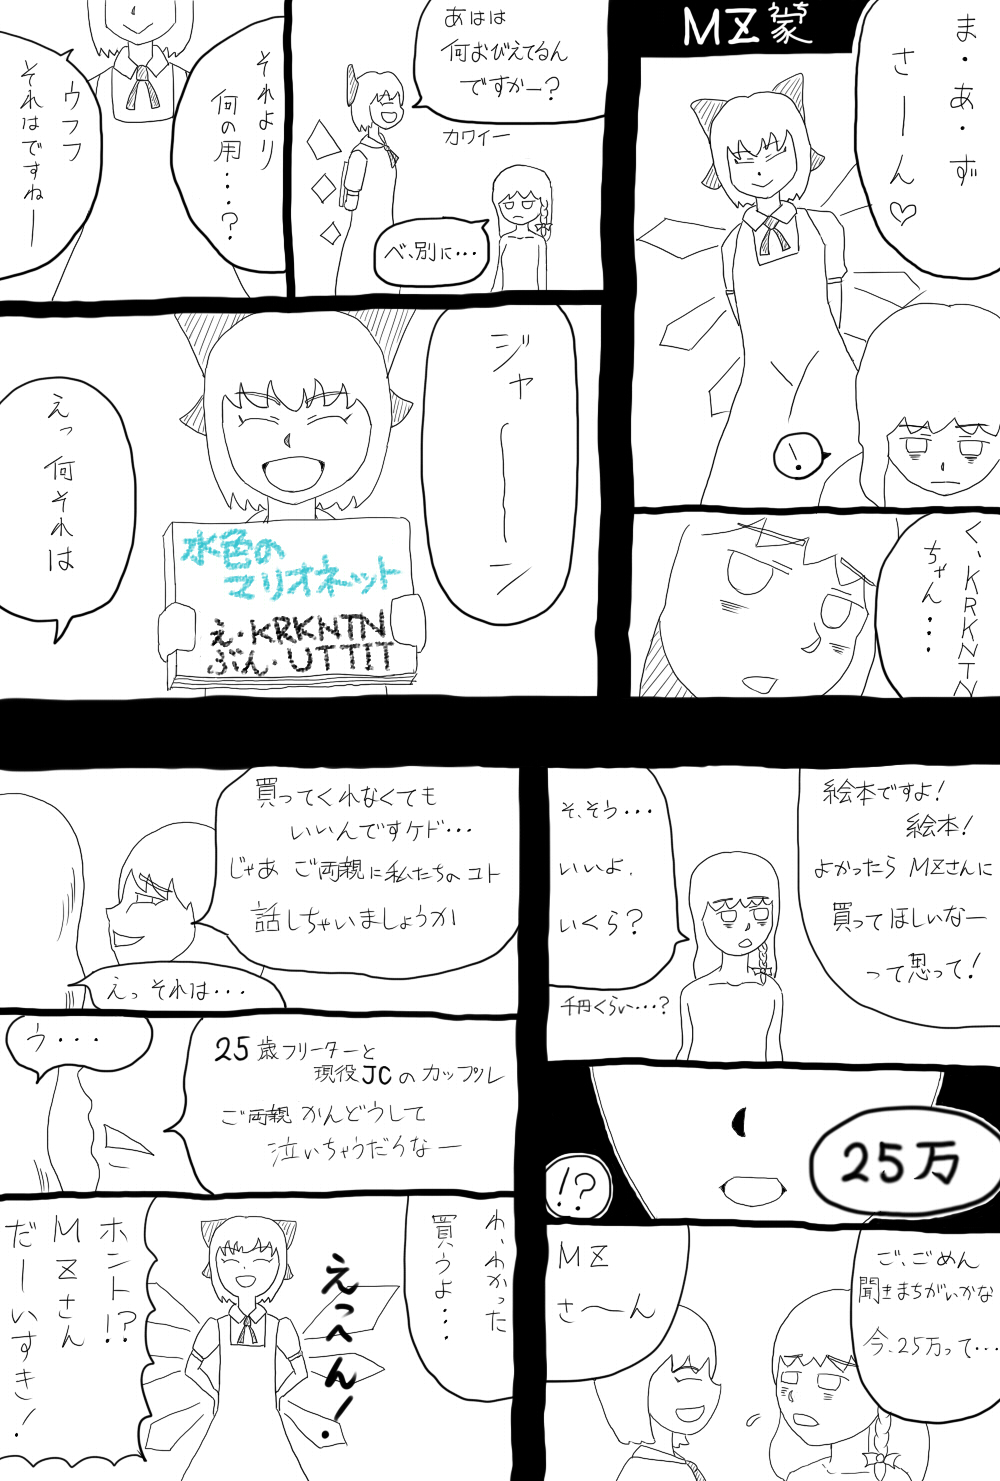 MZ家
んち
ま・あ・ず
さーん♡
！
く、KRKNTN
ちゃん・・・
あはは
何おびえてるん
ですかー？
カワイー
べ、別に・・・
それより
何の用・・・？
ウフフ
それはですねー
ジャーーン
水色の
マリオネット
え・KRKNTN
ぶん・UTTIT
えっ何それは
絵本ですよ！
絵本！
よかったら MZさんに
買ってほしいなー
って思って！
そ、そう・・・
いいよ.
いくら？
千円くらい・・・？
25万
!?
ご、ごめん
聞きまちがいかな
今、25万って・・・
MZ
さ〜ん
買ってくれなくても
いいんですケド・・・
じゃあ ご両親に私たちのコト
話しちゃいましょうか
えっ それは・・・
25歳フリーターと
現役JCのカップル
ご両親 かんどうして
泣いちゃうだろなー
う・・・
わ、わかった
買うよ・・・
えっへん！
ホント!?
MZさん
だーいすき！